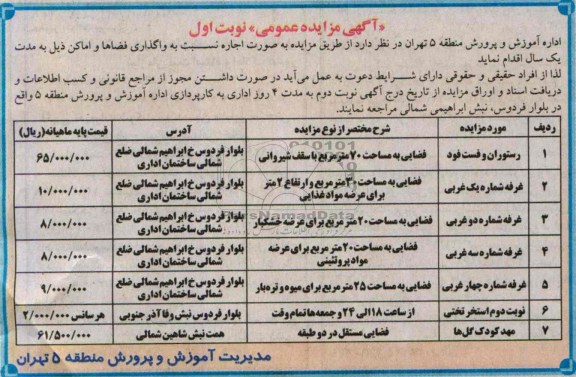 «آگهی مزایده عمومی» نوبت اول
اداره آموزش و پرورش منطقه ۵ تهران در نظر دارد از طریق مزایده به صورت اجاره نسبت به واگذاری فضاها و اماکن ذیل به مدت
یک سال اقدام نماید
لذا از افراد حقیقی و حقوقی دارای شرایط دعوت به عمل می‌آید در صورت داشتن مجوز از مراجع قانونی و کسب اطلاعات و
دریافت اسناد و اوراق مزایده از تاریخ درج آگهی نوبت دوم به مدت ۴ روز اداری به کارپردازی اداره آموزش و پرورش منطقه ۵ واقع
در بلوار فردوس، نبش ابراهیمی شمالی مراجعه نمایند.
ردیف مورد مزایده شرح مختصر از نوع مزایده آدرس قیمت پایه ماهیانه (ریال)
۱ رستوران و فست فود فضایی به مساحت ۷۰ مترمربع با سقف شیروانی بلوار فردوس خ ابراهیم شمالی ضلع شمالی ساختمان اداری ۶۵/۰۰۰/۰۰۰
۲ غرفه شماره یک غربی فضایی به مساحت ۳۰ مترمربع و ارتفاع ۲ متر برای عرضه مواد غذایی بلوار فردوس خ ابراهیم شمالی ضلع شمالی ساختمان اداری ۱۰/۰۰۰/۰۰۰
۳ غرفه شماره دو غربی فضایی به مساحت ۲۰ مترمربع برای عرضه خشکبار بلوار فردوس خ ابراهیم شمالی ضلع شمالی ساختمان اداری ۸/۰۰۰/۰۰۰
۴ غرفه شماره سه غربی فضایی به مساحت ۲۰ مترمربع برای عرضه مواد پروتئینی بلوار فردوس خ ابراهیم شمالی ضلع شمالی ساختمان اداری ۸/۰۰۰/۰۰۰
۵ غرفه شماره چهار غربی فضایی به مساحت ۲۵ مترمربع برای میوه و تره بار بلوار فردوس خ ابراهیم شمالی ضلع شمالی ساختمان اداری ۹/۰۰۰/۰۰۰
۶ نوبت دوم استخر تختی از ساعت ۱۸ الی ۲۴ و جمعه ها تمام وقت بلوار فردوس نبش وفا آذر جنوبی هر سانس ۲/۰۰۰/۰۰۰
۷ مهد کودک گل‌ها فضایی مستقل در دو طبقه همت نبش شاهین شمالی ۶۱/۵۰۰/۰۰۰
مدیریت آموزش و پرورش منطقه ۵ تهران